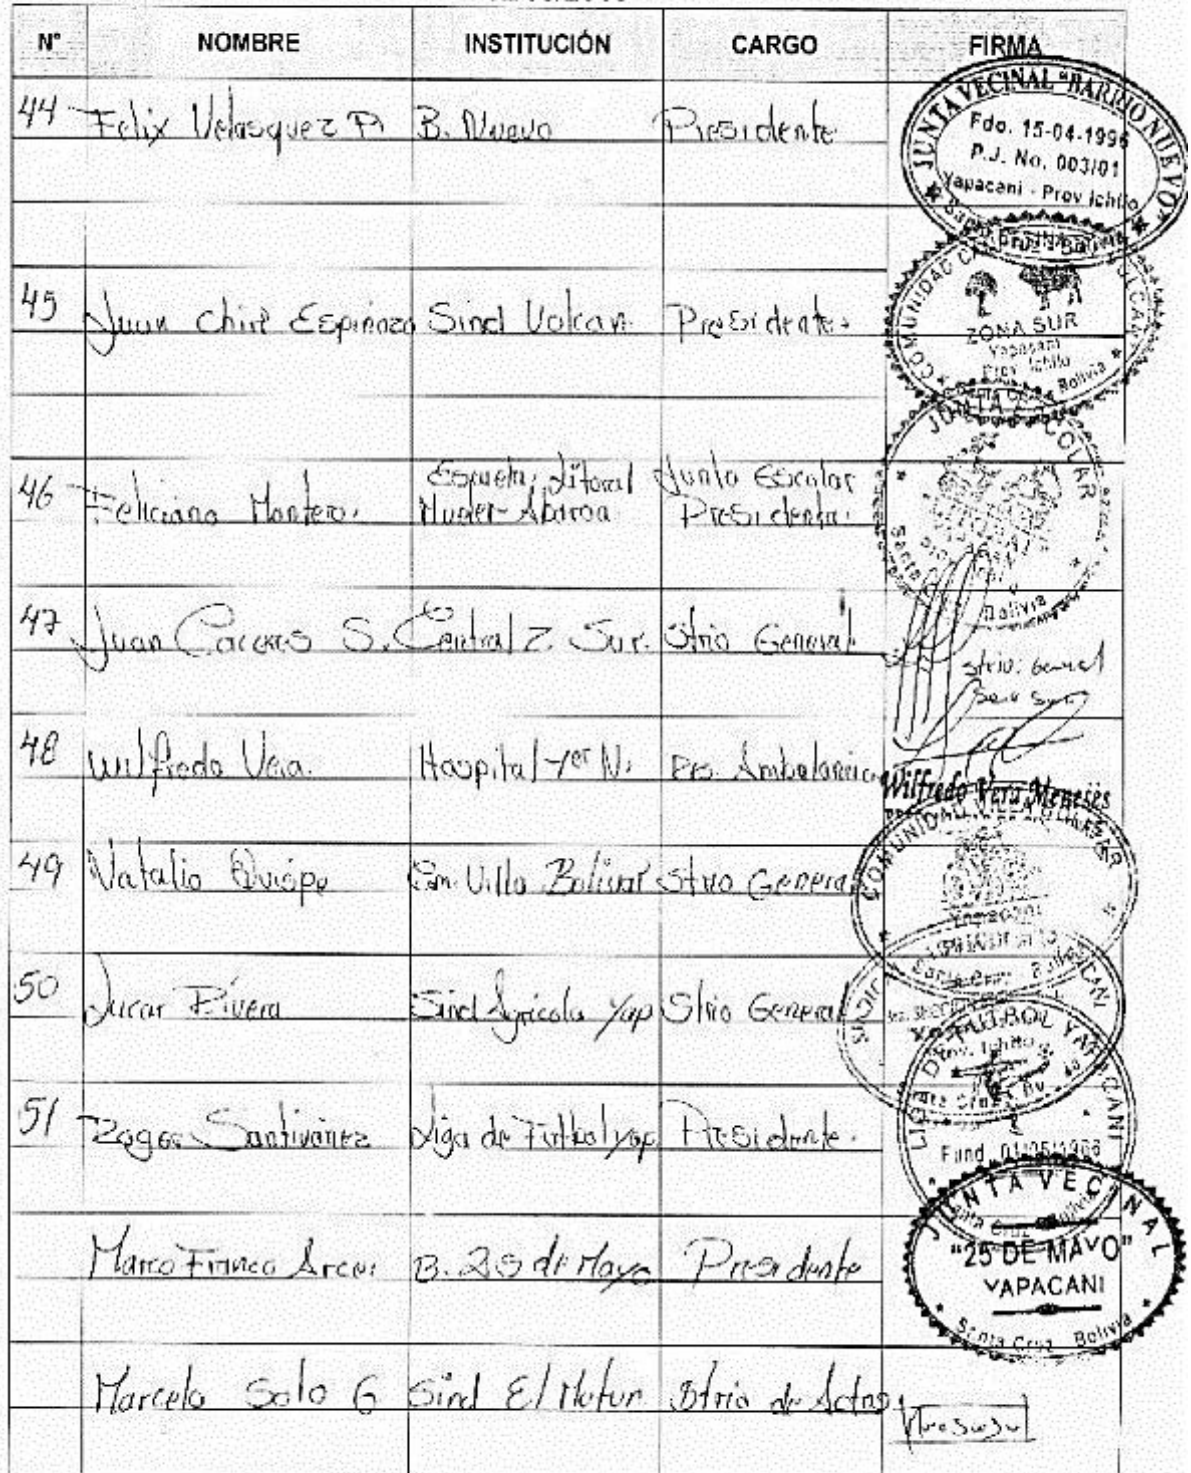 N° NOMBRE INSTITUCIÓN CARGO FIRMA
44 Felix Velasquez P. B. Nuevo Presidente
JUNTA VECINAL "BARRIO NUEVO"
Fdo. 15-04-1996
P.J. No. 003/01
Yapacani - Prov Ichilo
Santa Cruz - Bolivia
45 Juan Chire Espinoza Sind Volcan Presidente
COMUNIDAD
ZONA SUR
Yapacani
Prov. Ichilo
Santa Cruz Bolivia
46 Feliciano Montero Escuela Litoral Junta Escolar
Abaroa Presidente
JUNTA ESCOLAR
Santa
Bolivia
47 Juan Caceres S. Central Z. Sur. Strio General
Strio. General
48 Wilfredo Vera. Hospital 1er N. Ambulancia
Wilfredo Vera Meneses
49 Natalio Quispe Com. Villa Bolivar Strio General
COMUNIDAD VILLA BOLIVAR
Yapacani
50 Rivera Sind Agricola Yap Strio General
51 Santivañez Liga de Futbol yap. Presidente.
LIGA DE FUTBOL YAPACANI
Prov. Ichilo
Fund. 01/05/1966
Marco Franco Arce B. 25 de Mayo Presidente
JUNTA VECINAL
"25 DE MAYO"
YAPACANI
Santa Cruz Bolivia
Marcelo Soto G Sind El Strio de Actas